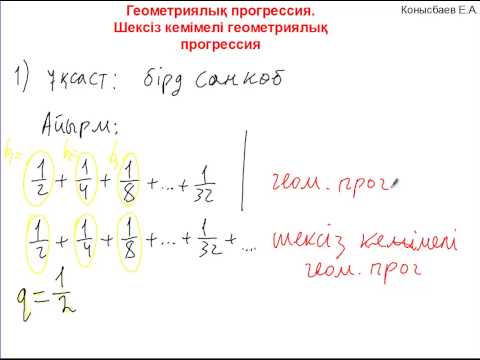 Геометриялық прогрессия.
Шексіз кемімелі геометриялық
прогрессия
Конысбаев Е.А.
1) Ұқсаст: бірд санкөб
Айырм:
b₁= b₂= b₃
1/2 + 1/4 + 1/8 + ... + 1/32 геом. прог
1/2 + 1/4 + 1/8 + ... + 1/32 + ... шексіз кемімелі
геом. прог
q = 1/2